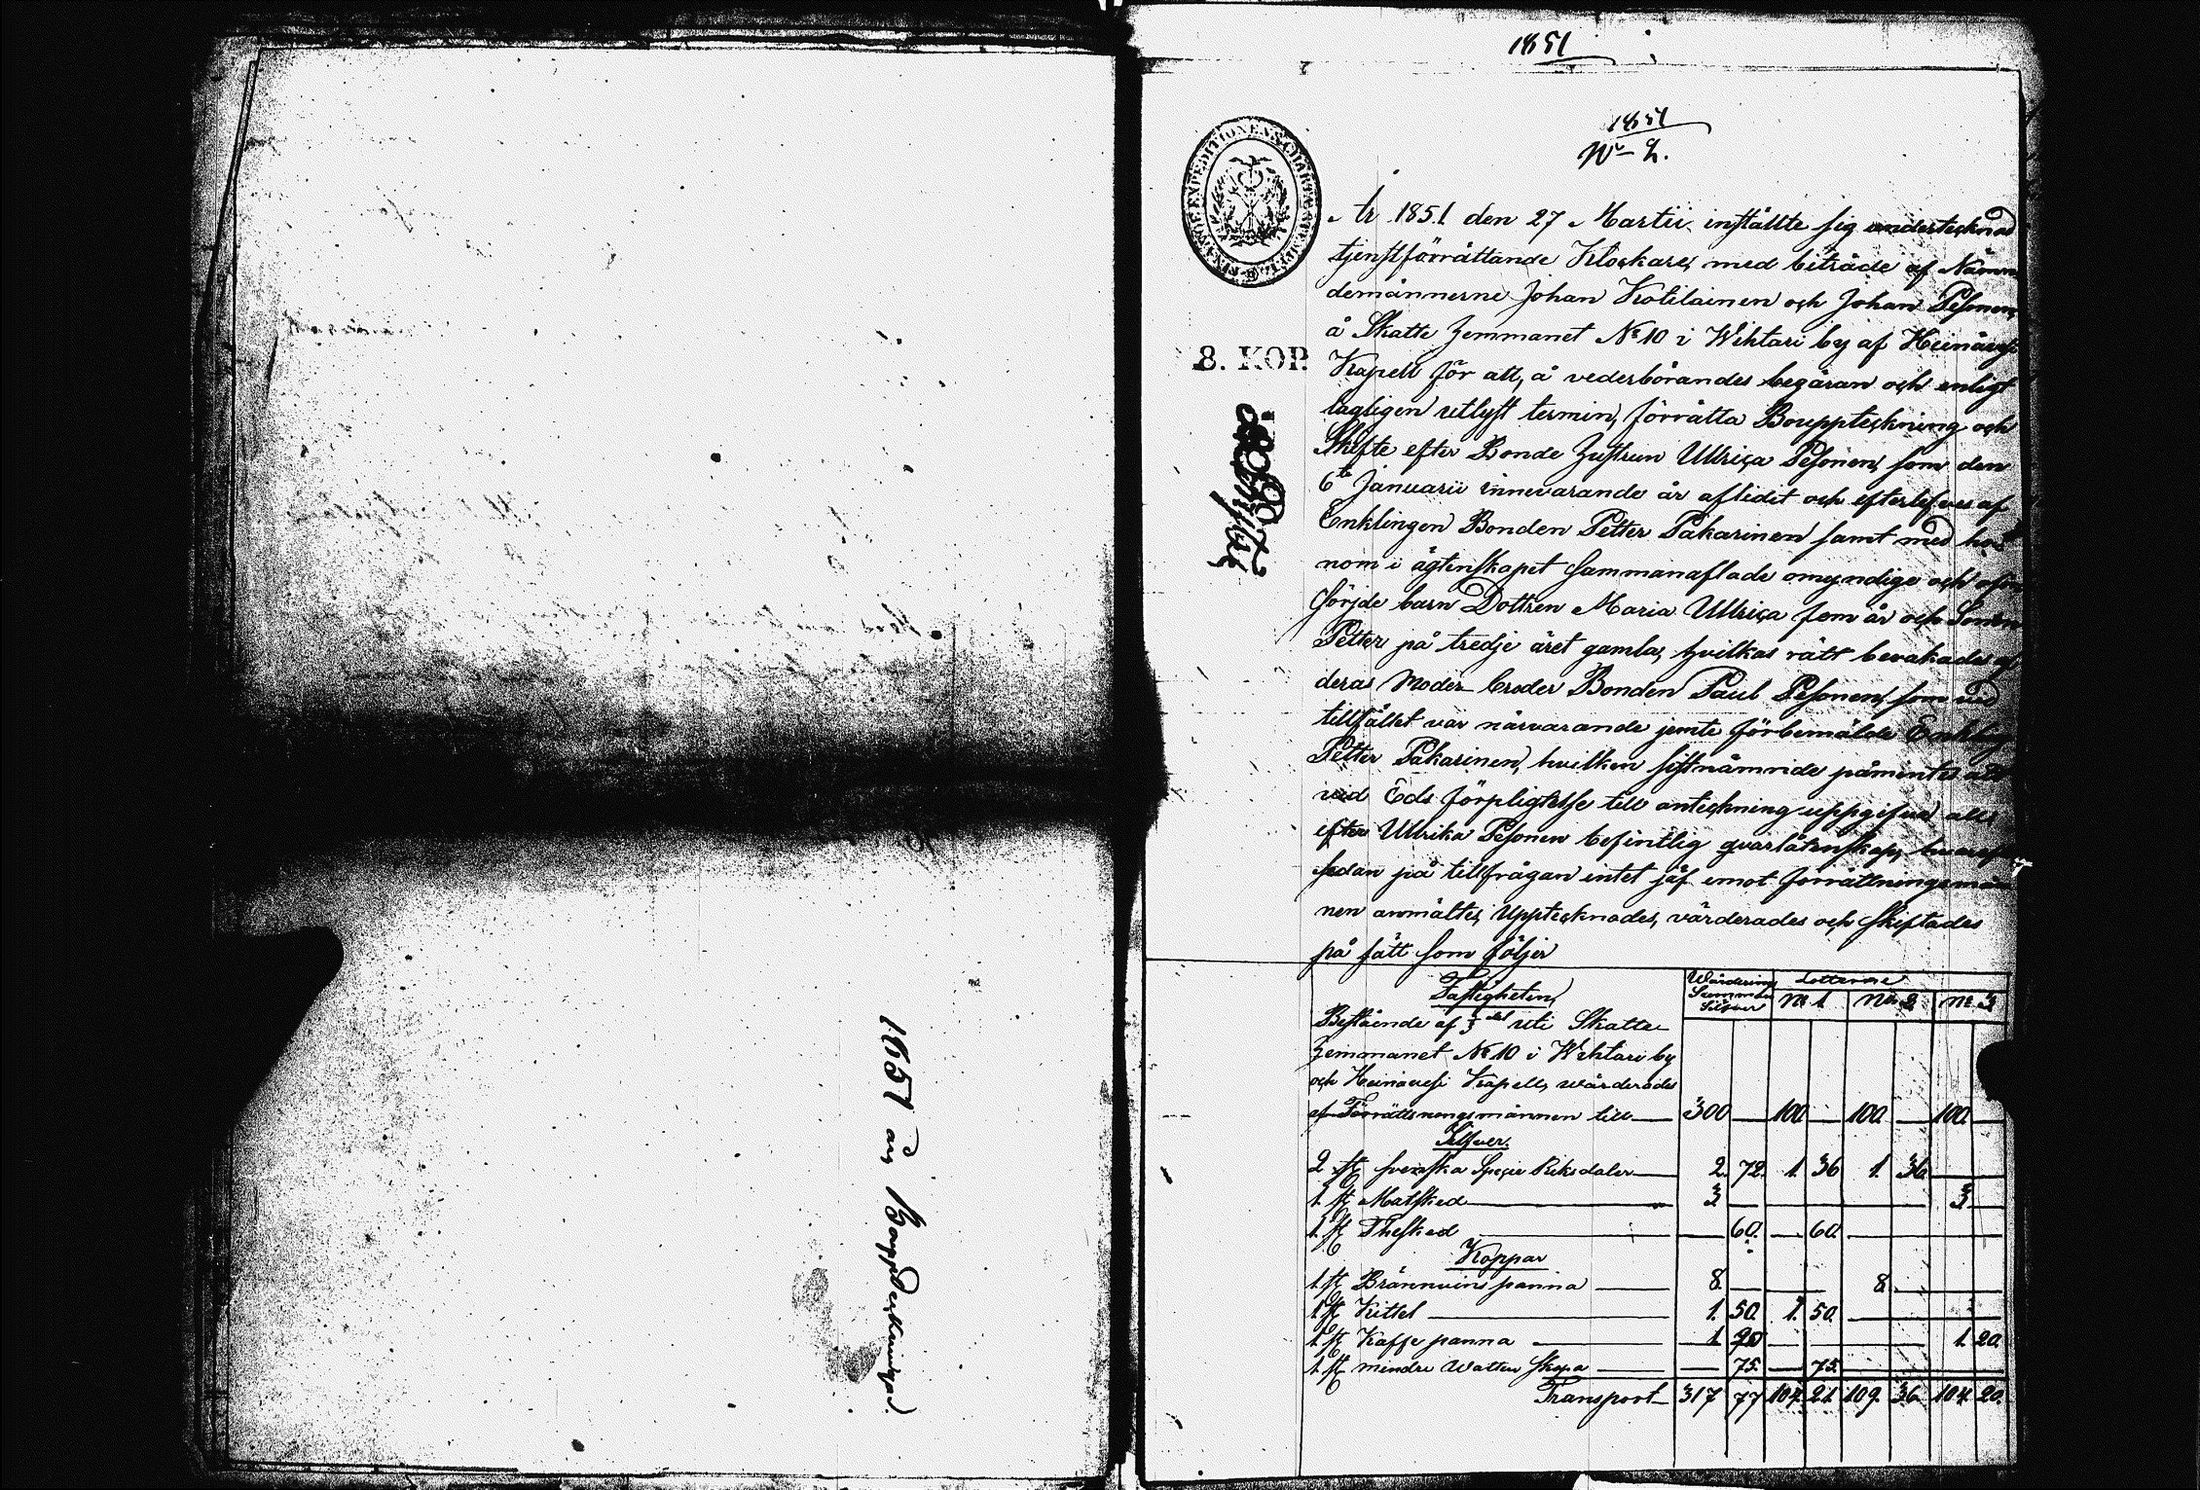 1851 års Bouppteckningar.
1851
1851
No 2.
FINANCE EXPEDITIONENS CHARTÆ
8. KOP.
År 1851 den 27 Martii inställte sig undertecknad
tjenstförrättande Klockare, med biträde af Nämn
demännerne Johan Kotilainen och Johan Pesonen,
å Skatte Hemmanet No 10 i Wihtari by af Heinävesi
Kapell för att, å vederbörandes begäran och enligt
lagligen utlyst termin, förrätta Bouppteckning och
Skifte efter Bonde Hustrun Ullrica Pesonen, som den
6te Januarii innevarande år aflidit och efterlefves af
Enklingen Bonden Petter Pakarinen samt med ho
nom i ägtenskapet sammanaflade omyndige och oför
sörjde barn Dottren Maria Ullrica fem år och Sonen
Petter på tredje året gamla, hvilkas rätt bevakades af
deras Moder broder Bonden Paul Pesonen, som vid
tillfället var närvarande jemte förbemälde Enkling
Petter Pakarinen, hvilken sistnämnde påmintes att
vid Eds förpligtelse till anteckning uppgifva all
efter Ullrika Pesonen befintlig qvarlåtenskap,
sedan på tillfrågan intet jäf emot förrättningsmän
nen anmältes, upptecknades, värderades och skiftades
på sätt som följer
Fastigheten Wärderings Summa Silfver Lotterne No 1 No 2 No 3
Bestående af 1/3 del uti Skatte
Hemmanet No 10 i Wihtari by
och Heinävesi Kapell, wärderades
af Förrättningsmännen till 300 100 100 100
Silfver
2 st Svenska Specie Riksdaler 2. 72. 1. 36 1. 36
1 st Matsked 3 3
1 st Thesked 60. 60.
Koppar
1 st Brännvins panna 8. 8.
1 st Kittel 1. 50. 1. 50.
1 st Kaffe panna 1. 20 1. 20.
1 st mindre Watten Skopa 75. 75.
Transport 317 77 104. 21. 109. 36 104. 20.